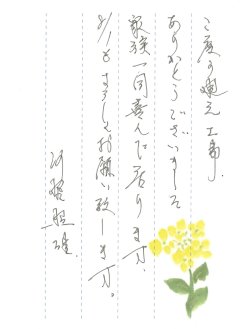 この度の 工事、
ありがとうございました
家族一同喜んで居ります、
よろしくお願い致します。